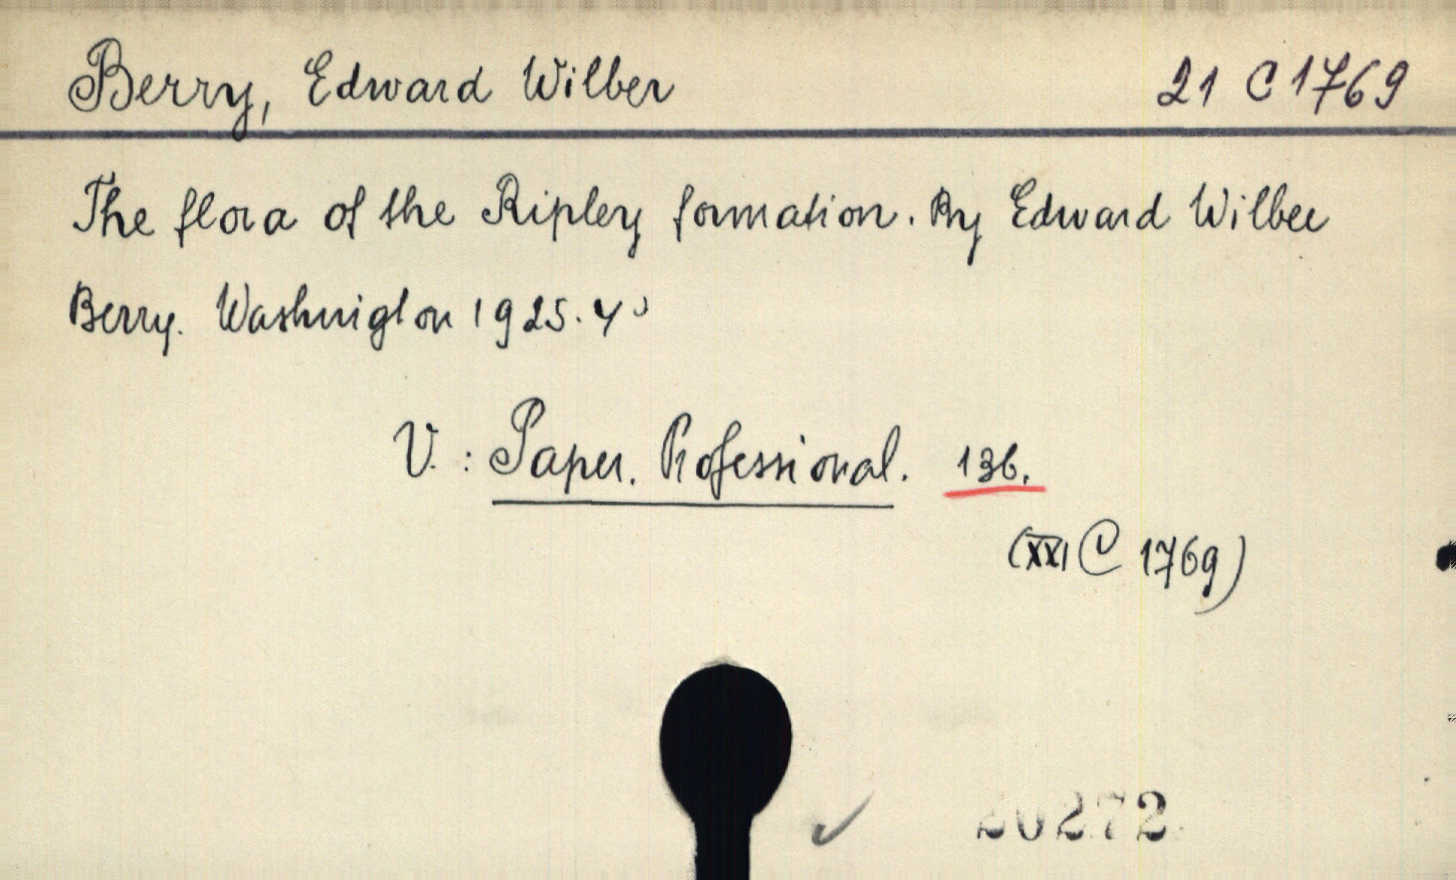 Berry, Edward Wilber 21 C 1769
The flora of the Ripley formation. By Edward Wilber
Berry. Washington 1925. 4°
V.: Paper. Professional. 136.
(XXI C 1769)
20272